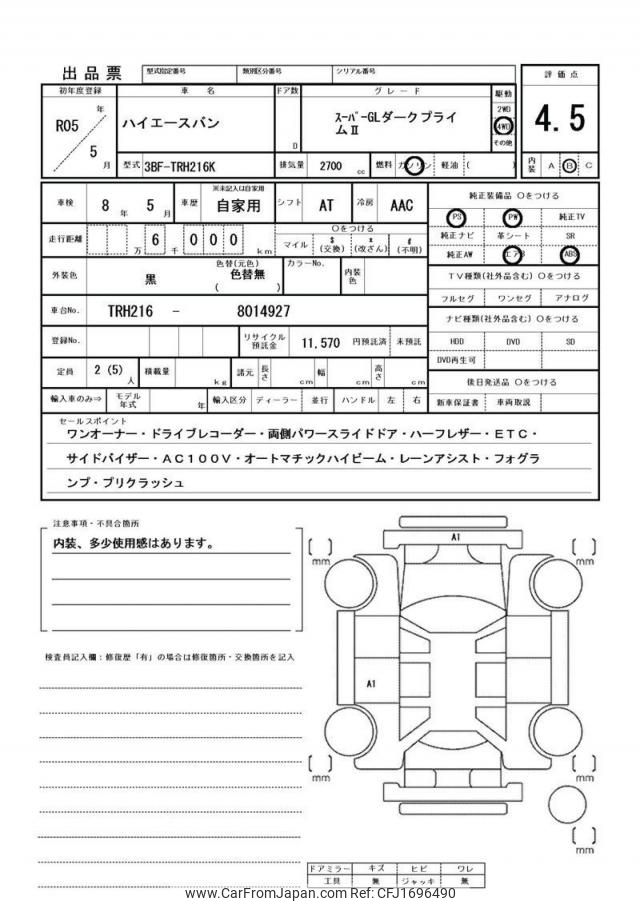 出品票
型式指定番号 類別区分番号 シリアル番号
評価点
4.5
内装 A B C
初年度登録 車名 ドア数 グレード 駆動
R05 年 5 月
ハイエースバン
D
スーパーGLダークプライムⅡ
2WD
4WD
その他
型式 3BF-TRH216K 排気量 2700 cc 燃料 ガソリン ・ 軽油 ・( )
車検 8 年 5 月 車歴 ※未記入は自家用 自家用 シフト AT 冷房 AAC
走行距離 6 万 千 000 km
○をつける
マイル $(交換) *(改ざん) #(不明)
外装色 黒 色替(元色) 色替無 ( ) カラーNo. 内装色
車台No. TRH216 - 8014927
登録No. リサイクル預託金 11,570 円預託済 未預託
定員 2 (5) 人 積載量 kg 諸元 長さ cm 幅 cm 高さ cm
輸入車のみ⇒ モデル年式 年 輸入区分 ディーラー ・ 並行 ハンドル 左 ・ 右
純正装備品 ○をつける
PS PW 純正TV
純正ナビ 革シート SR
純正AW エアB ABS
TV種類(社外品含む) ○をつける
フルセグ ワンセグ アナログ
ナビ種類(社外品含む) ○をつける
HDD DVD SD
DVD再生可
後日発送品 ○をつける
新車保証書 車両取説
セールスポイント
ワンオーナー・ドライブレコーダー・両側パワースライドドア・ハーフレザー・ETC・
サイドバイザー・AC100V・オートマチックハイビーム・レーンアシスト・フォグラ
ンプ・プリクラッシュ
注意事項・不具合箇所
内装、多少使用感はあります。
検査員記入欄:修復歴「有」の場合は修復箇所・交換箇所を記入
A1
A1
mm
mm
mm
mm
mm
ドアミラー キズ ヒビ ワレ
工具 無 ジャッキ 無
www.CarFromJapan.com CFJ1696490